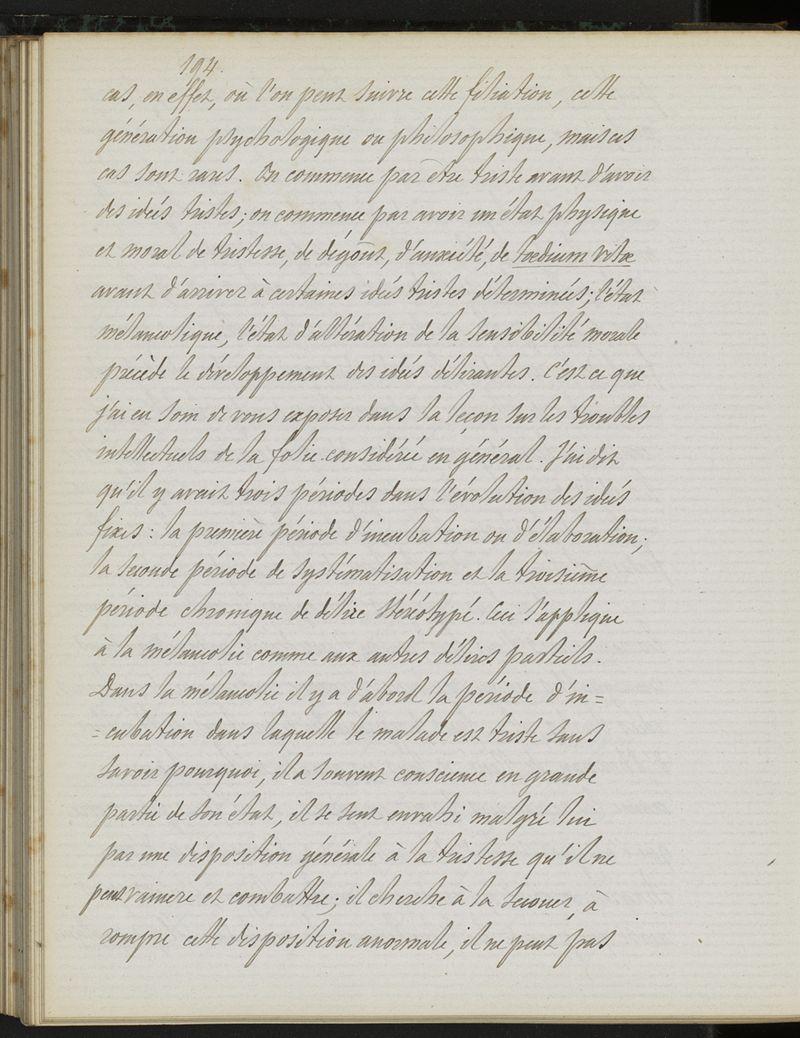 194.
cas, en effet, où l'on peut suivre cette filiation, cette
génération psychologique ou philosophique, mais ces
cas sont rares. On commence par être triste avant d'avoir
des idées tristes; on commence par avoir un état physique
et moral de tristesse, de dégoût, d'anxiété, de tædium vitæ
avant d'arriver à certaines idées tristes déterminées; l'état
mélancolique, l'état d'altération de la sensibilité morale
précède le développement des idées délirantes. C'est ce que
j'ai eu soin de vous exposer dans la leçon sur les troubles
intellectuels de la folie considérée en général. J'ai dit
qu'il y avait trois périodes dans l'évolution des idées
fixes: la première période d'incubation ou d'élaboration;
la seconde période de systématisation et la troisième
période chronique de délire stéréotypé. Ceci s'applique
à la mélancolie comme aux autres délires partiels.
Dans la mélancolie il y a d'abord la période d'in=
=cubation dans laquelle le malade est triste sans
savoir pourquoi, il a souvent conscience en grande
partie de son état, il se sent envahi malgré lui
par une disposition générale à la tristesse qu'il ne
peut vaincre et combattre; il cherche à la secouer, à
rompre cette disposition anormale, il ne peut pas